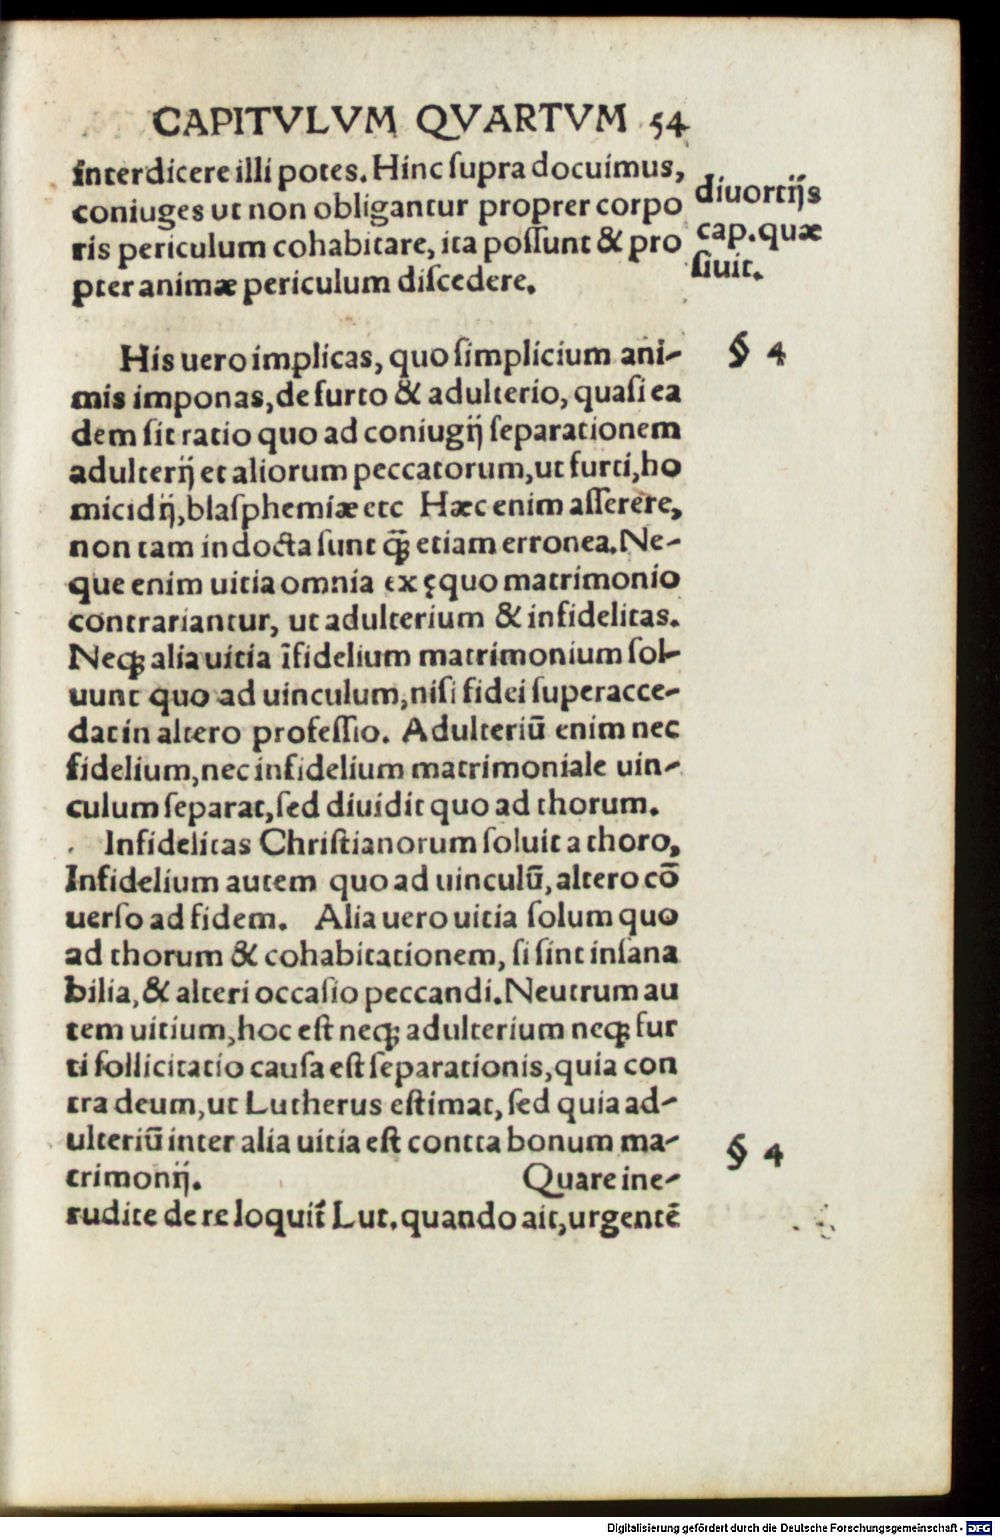 CAPITVLVM QVARTVM 54
interdicere illi potes. Hinc ſupra docuimus,
coniuges ut non obligantur proprer corpo
ris periculum cohabitare, ita poſſunt & pro
pter animæ periculum diſcedere.
diuortijs
cap. quæ
ſiuit.
His uero implicas, quo ſimplicium ani-
mis imponas, de furto & adulterio, quaſi ea
dem ſit ratio quo ad coniugij ſeparationem
adulterij et aliorum peccatorum, ut furti, ho
micidij, blaſphemiæ etc Hæc enim aſſerere,
non tam indocta ſunt q̃ꝫ etiam erronea. Ne-
que enim uitia omnia ex ęquo matrimonio
contrariantur, ut adulterium & infidelitas.
Neqꝫ alia uitia ĩfidelium matrimonium ſol-
uunt quo ad uinculum, niſi fidei ſuperacce-
dat in altero profeſſio. Adulteriũ enim nec
fidelium, nec infidelium matrimoniale uin-
culum ſeparat, ſed diuidit quo ad thorum.
Infidelitas Chriſtianorum ſoluit a thoro,
Infidelium autem quo ad uinculũ, altero cõ
uerſo ad fidem. Alia uero uitia ſolum quo
ad thorum & cohabitationem, ſi ſint inſana
bilia, & alteri occaſio peccandi. Neutrum au
tem uitium, hoc eſt neqꝫ adulterium neqꝫ fur
ti ſollicitatio cauſa eſt ſeparationis, quia con
tra deum, ut Lutherus eſtimat, ſed quia ad-
ulteriũ inter alia uitia eſt contta bonum ma-
trimonij. Quare ine-
rudite de re loquit̃ Lut. quando ait, urgentẽ
§ 4
§ 4
Digitalisierung gefördert durch die Deutsche Forschungsgemeinschaft - DFG